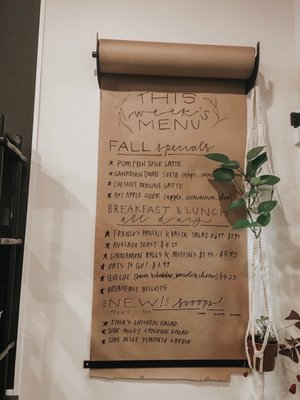 THIS
week's
MENU
FALL specials
★ PUMPKIN SPICE LATTE
★ CANADIAN DOWN SOUTH (maple,
★ CHESTNUT PRALINE LATTE
★ HOT APPLE CIDER (apple, cinnamon,
BREAKFAST & LUNCH
all day
★ FRANCO'S PANINI & PASTA SALAD
★ AVOCADO TOAST $4.25
★ CINNAMON ROLLS & MUFFINS $2.75 - $3.75
★ OATS TO GO! $3.99
★ QUICHE (bacon & cheddar, & cheese) $3.25
★ BREAKFAST BISCUITS
NEW!! scoops!
★ TINA'S CHICKEN SALAD
★ SIDE ALLEY CHICKEN SALAD
★ SIDE ALLEY PIMENTO CHEESE